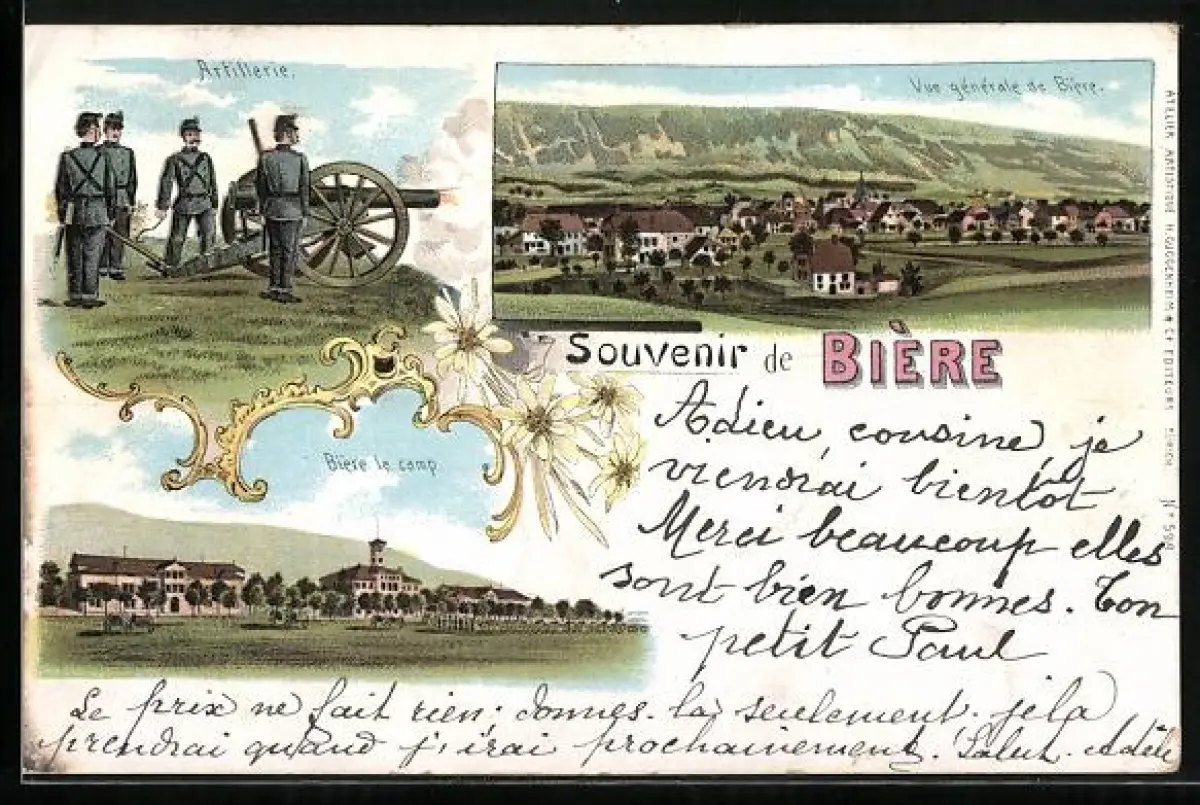 Artillerie.
Vue générale de Bière.
Souvenir de BIÈRE
Bière le camp
Adieu, cousine, je
viendrai bientôt
Merci beaucoup elles
sont bien bonnes. Ton
petit Paul
Le prix ne fait rien; donnes-la seulement. je la
prendrai quand j'irai prochainement. Salut. Adèle
ATELIER ARTISTIQUE H. GUGGENHEIM & Cie EDITEURS ZÜRICH